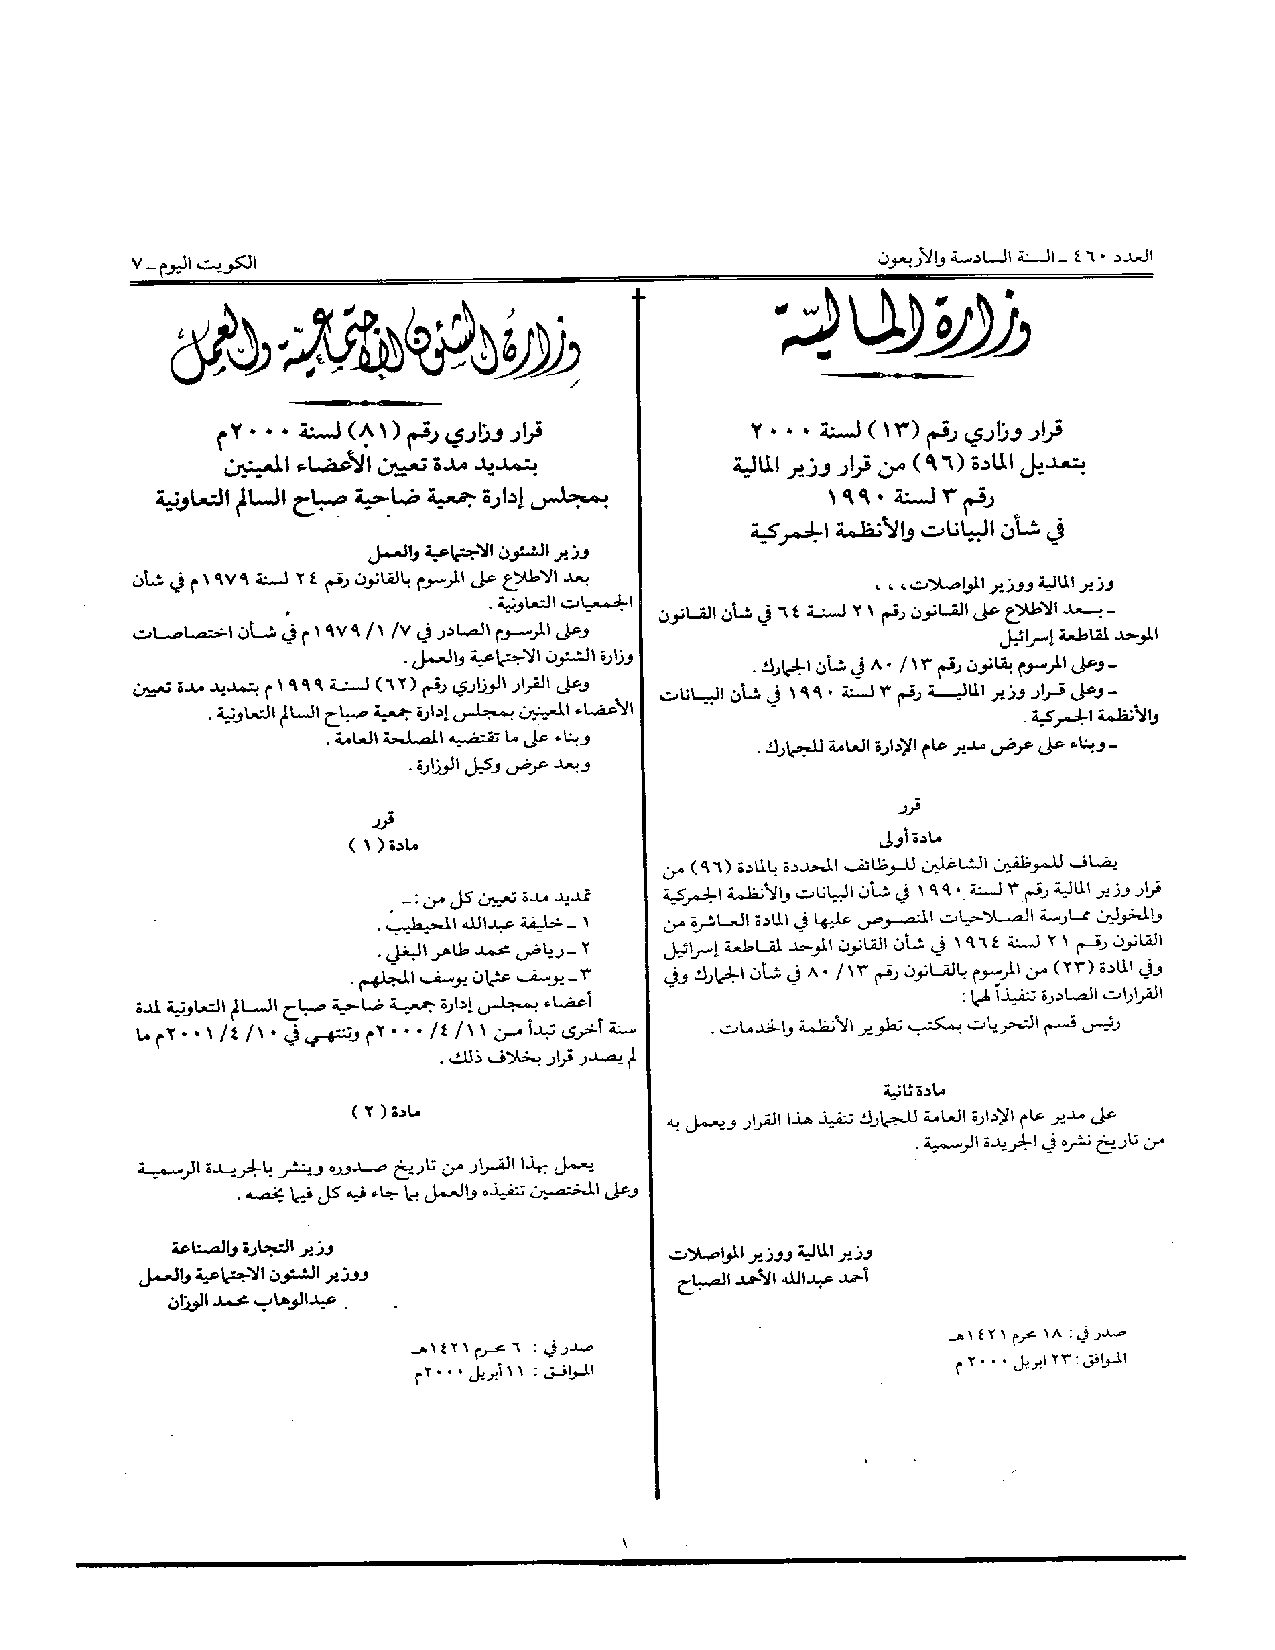 العدد ٤٦٠ - السنة السادسة والأربعون
الكويت اليوم - ٧
وزارة المالية
قرار وزاري رقم (١٣) لسنة ٢٠٠٠
بتعديل المادة (٩٦) من قرار وزير المالية
رقم ٣ لسنة ١٩٩٠
في شأن البيانات والأنظمة الجمركية
وزير المالية ووزير المواصلات،،،
- بعد الاطلاع على القانون رقم ٢١ لسنة ٦٤ في شأن القانون
الموحد لمقاطعة إسرائيل
- وعلى المرسوم بقانون رقم ١٣/ ٨٠ في شأن الجمارك.
- وعلى قرار وزير المالية رقم ٣ لسنة ١٩٩٠ في شأن البيانات
والأنظمة الجمركية.
- وبناء على عرض مدير عام الإدارة العامة للجمارك.
قرر
مادة أولى
يضاف للموظفين الشاغلين للوظائف المحددة بالمادة (٩٦) من
قرار وزير المالية رقم ٣ لسنة ١٩٩٠ في شأن البيانات والأنظمة الجمركية
والمخولين ممارسة الصلاحيات المنصوص عليها في المادة العاشرة من
القانون رقم ٢١ لسنة ١٩٦٤ في شأن القانون الموحد لمقاطعة إسرائيل
وفي المادة (٢٣) من المرسوم بالقانون رقم ١٣/ ٨٠ في شأن الجمارك وفي
القرارات الصادرة تنفيذاً لهما:
رئيس قسم التحريات بمكتب تطوير الأنظمة والخدمات.
مادة ثانية
على مدير عام الإدارة العامة للجمارك تنفيذ هذا القرار ويعمل به
من تاريخ نشره في الجريدة الرسمية.
وزير المالية ووزير المواصلات
أحمد عبدالله الأحمد الصباح
صدر في: ١٨ محرم ١٤٢١هـ
الموافق: ٢٣ ابريل ٢٠٠٠م
وزارة الشئون الاجتماعية والعمل
قرار وزاري رقم (٨١) لسنة ٢٠٠٠م
بتمديد مدة تعيين الأعضاء المعينين
بمجلس إدارة جمعية ضاحية صباح السالم التعاونية
وزير الشئون الاجتماعية والعمل
بعد الاطلاع على المرسوم بالقانون رقم ٢٤ لسنة ١٩٧٩م في شأن
الجمعيات التعاونية.
وعلى المرسوم الصادر في ٧/ ١/ ١٩٧٩م في شأن اختصاصات
وزارة الشئون الاجتماعية والعمل.
وعلى القرار الوزاري رقم (٦٢) لسنة ١٩٩٩م بتمديد مدة تعيين
الأعضاء المعينين بمجلس إدارة جمعية صباح السالم التعاونية.
وبناء على ما تقتضيه المصلحة العامة.
وبعد عرض وكيل الوزارة.
قرر
مادة (١)
تمديد مدة تعيين كل من:-
١ - خليفة عبدالله المحيطيب.
٢ - رياض محمد طاهر البغلي.
٣ - يوسف عثمان يوسف المجلهم.
أعضاء بمجلس إدارة جمعية ضاحية صباح السالم التعاونية لمدة
سنة أخرى تبدأ من ١١/ ٤/ ٢٠٠٠م وتنتهي في ١٠/ ٤/ ٢٠٠١م ما
لم يصدر قرار بخلاف ذلك.
مادة (٢)
يعمل بهذا القرار من تاريخ صدوره وينشر بالجريدة الرسمية
وعلى المختصين تنفيذه والعمل بما جاء فيه كل فيما يخصه.
وزير التجارة والصناعة
ووزير الشئون الاجتماعية والعمل
عبدالوهاب محمد الوزان
صدر في: ٦ محرم ١٤٢١هـ
الموافق: ١١ أبريل ٢٠٠٠م
١